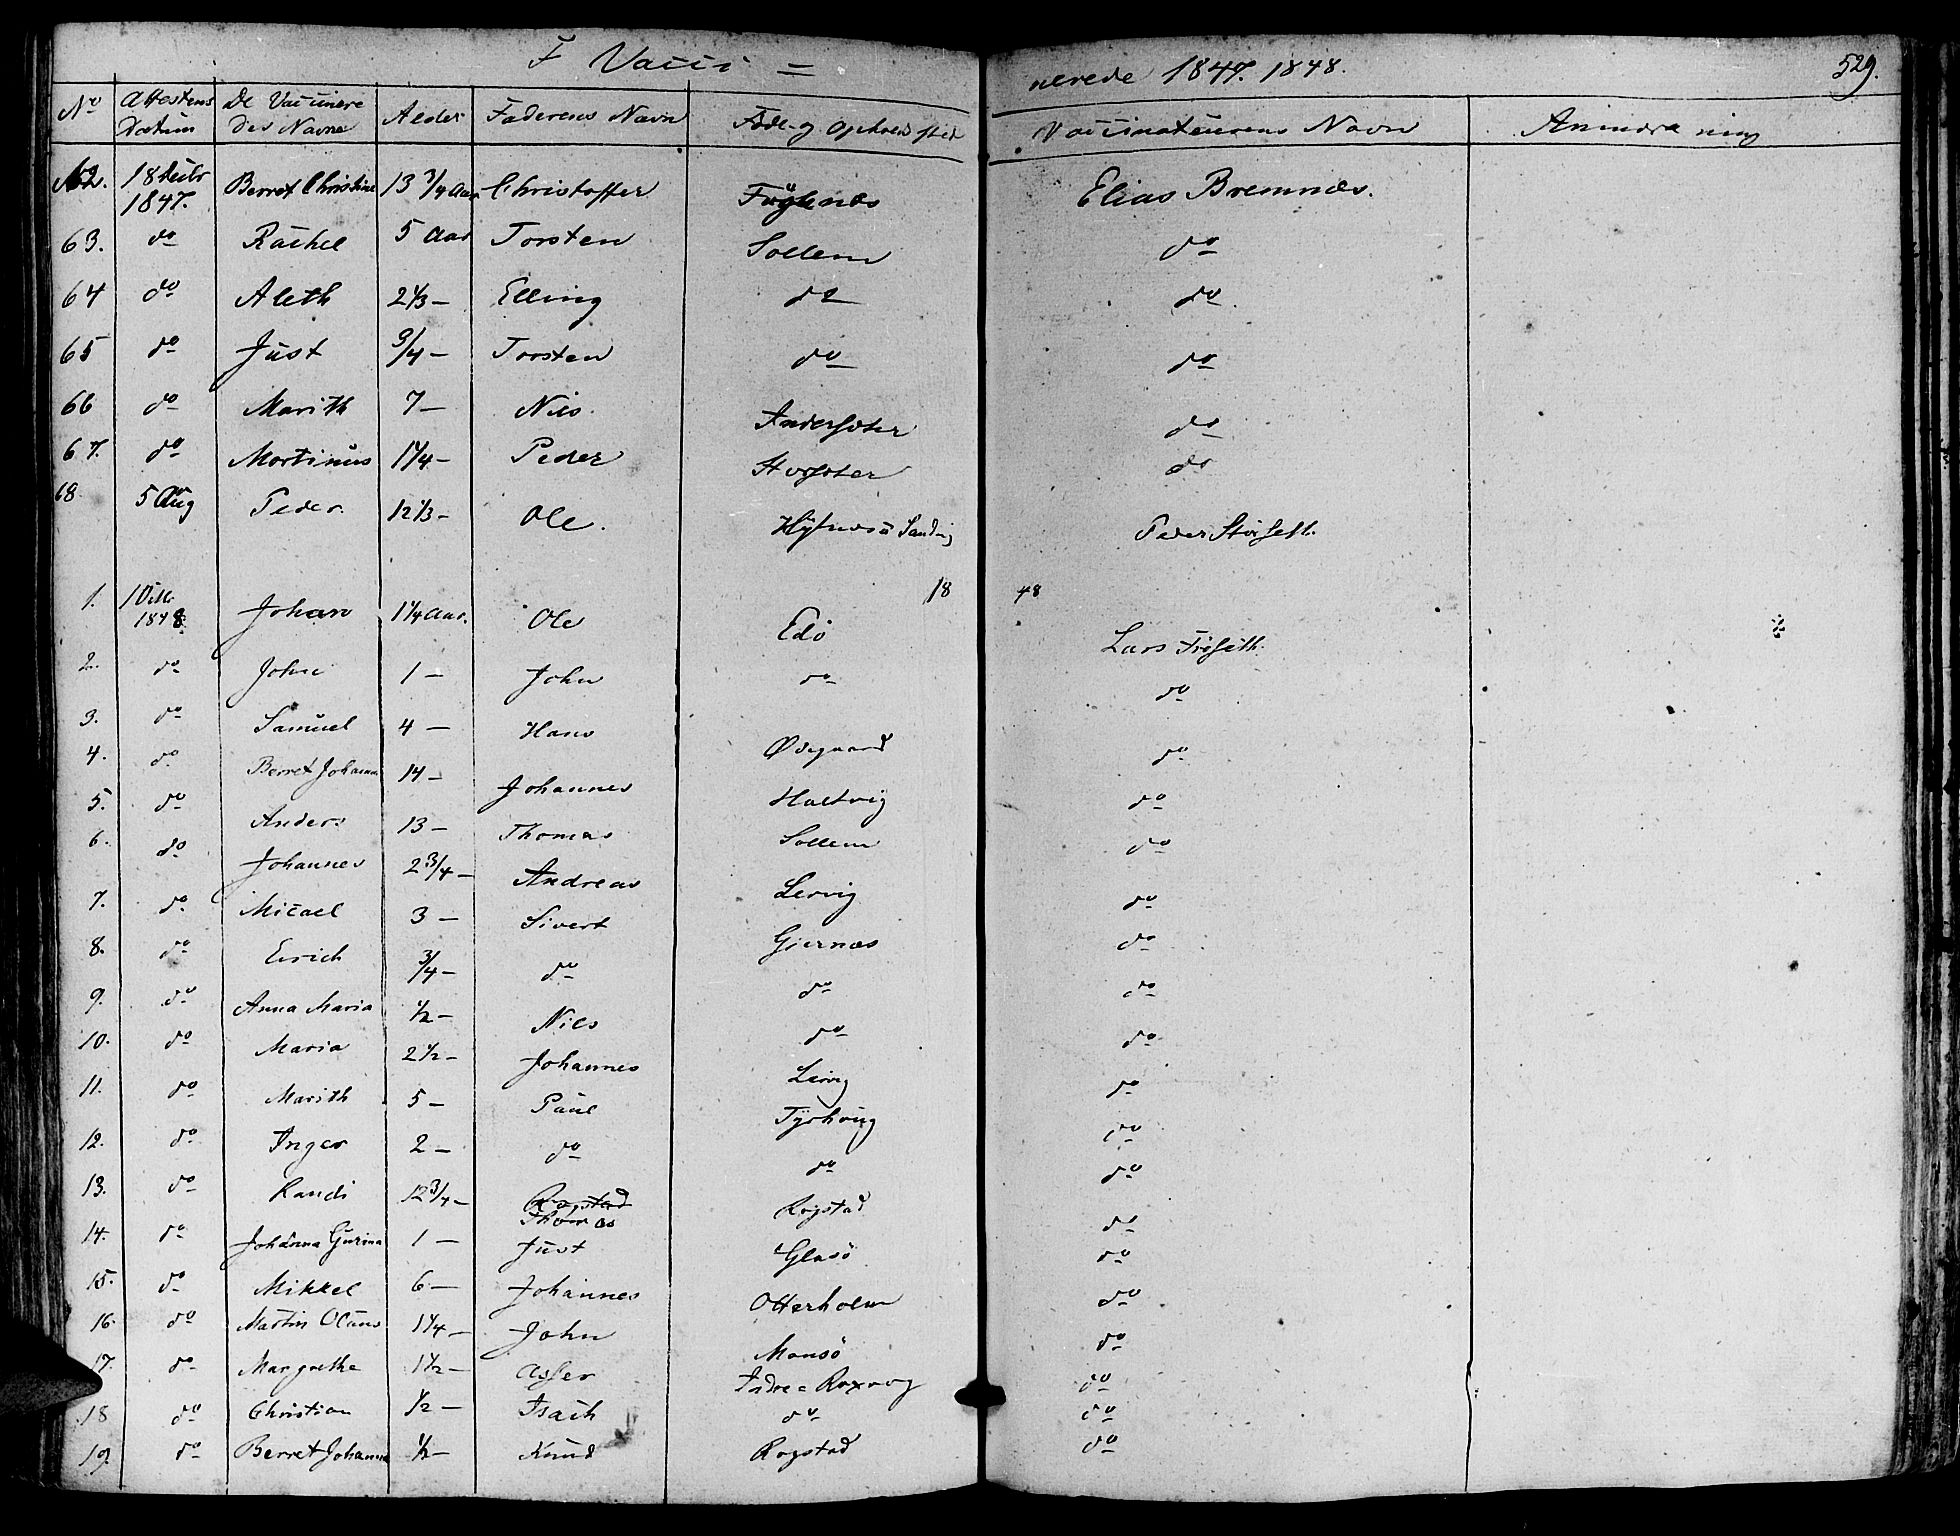 F Vacci = nerede 1847. 1848. 529.
No Attestens Datum De Vaccinere des Navne Alder Faderens Navn Føde- og Opholdsted Vaccinateurens Navn Anmærkning
62. 18 Decbr 1847. Berret Christine 13 3/4 Aar Christoffer Elias Bremnæs.
63. do Rachel 5 Aar Torsten Sollem do
64 do Aleth 2 1/3 — Elling do do
65 do Just 3/4 — Torsten do do
66 do Marith 7 — Nils. do
67. do Mortinus 1 1/4 — Peder do
68 5 Aug Peder. 12 1/3 — Ole. Peder Störseth.
1848
1. 1 Dec. 1848. Johan 1 1/4 Aar. Ole Edö Lars Fröseth.
2. do John 1 — John do do
3. do Samuel 4 — Hans Ødegaard do
4. do Berret Johanna 14 — Johannes Holtvig do
5. do Anders 13 — Thomas Sollem do
6. do Johannes 2 3/4 — Andreas Lervig do
7. do Micael 3 — Sivert Gjernæs do
8. do Erich 3/4 — do do do
9. do Anna Maria 1/2 — Nils do do
10. do Maria 2 1/2 — Johannes Lervig do
11. do Marith 5 — Paul Tyrhoug do
12. do Inger 2 — do do do
13. do Randi 12 3/4 — Rogstad Thomas Rogstad do
14. do Johanna Gurina 1 — Just Glasö do
15. do Mikkel 6 — Johannes Otterholm do
16. do Martin Olaus 1 1/4 — John Monsö do
17. do Margrethe 1 1/2 — Asser Indre Roxvog do
18 do Christian 1/2 — Isach do do
19 do Berret Johanna 1/2 — Knud Rogstad do